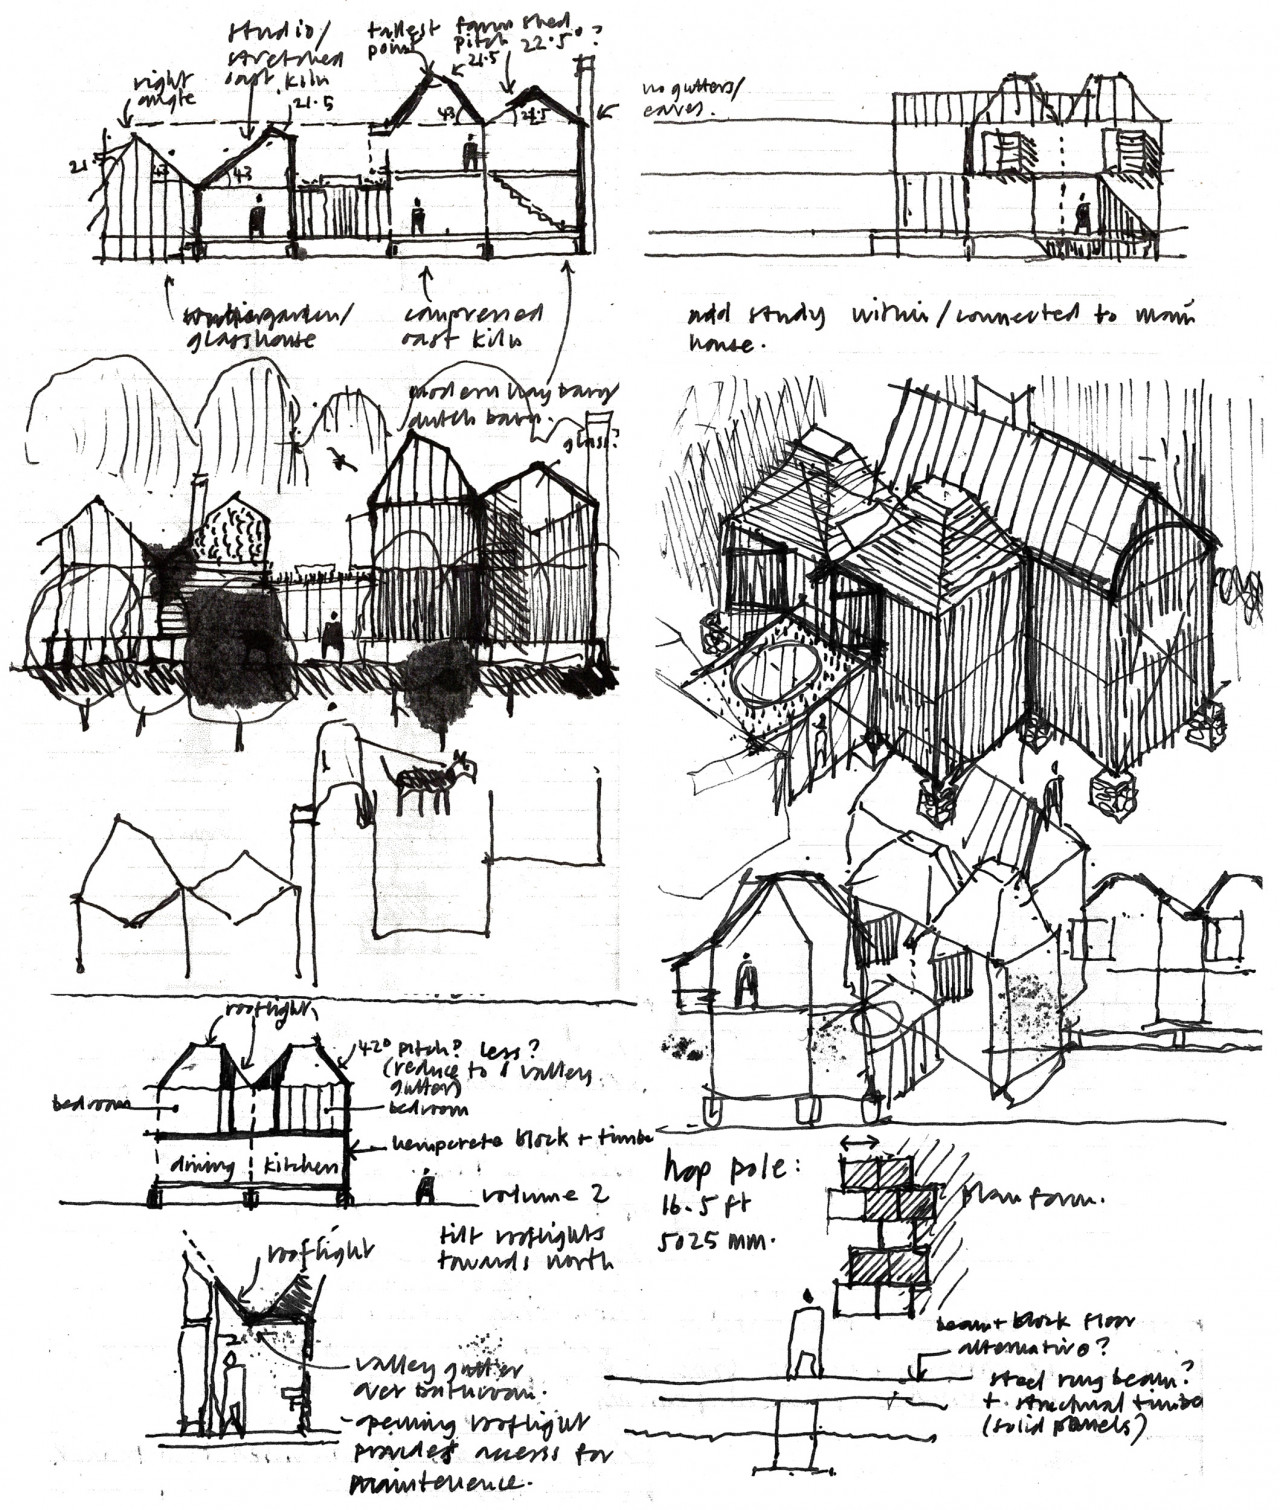 studio/
stretched
oast kiln
21.5
right
angle
tallest
point
farm shed
pitch 22.5°?
21.5
no gutters/
eaves.
21.5
43
43
43
22.5
wintergarden/
glasshouse
compressed
oast kiln
modern hay barn/
dutch barn.
glass?
add study within/connected to main
house.
rooflight
42° pitch? less?
(reduce to 1 valley
gutter)
bedroom
bedroom
hempcrete block + timber
dining
kitchen
volume 2
rooflight
tilt rooflights
towards north
valley gutter
over bathroom.
- opening rooflight
provides access for
maintenence.
hop pole:
16.5 ft
5025 mm.
plan form.
beam + block floor
alternative?
steel ring beam?
+ structural timber
(solid panels)